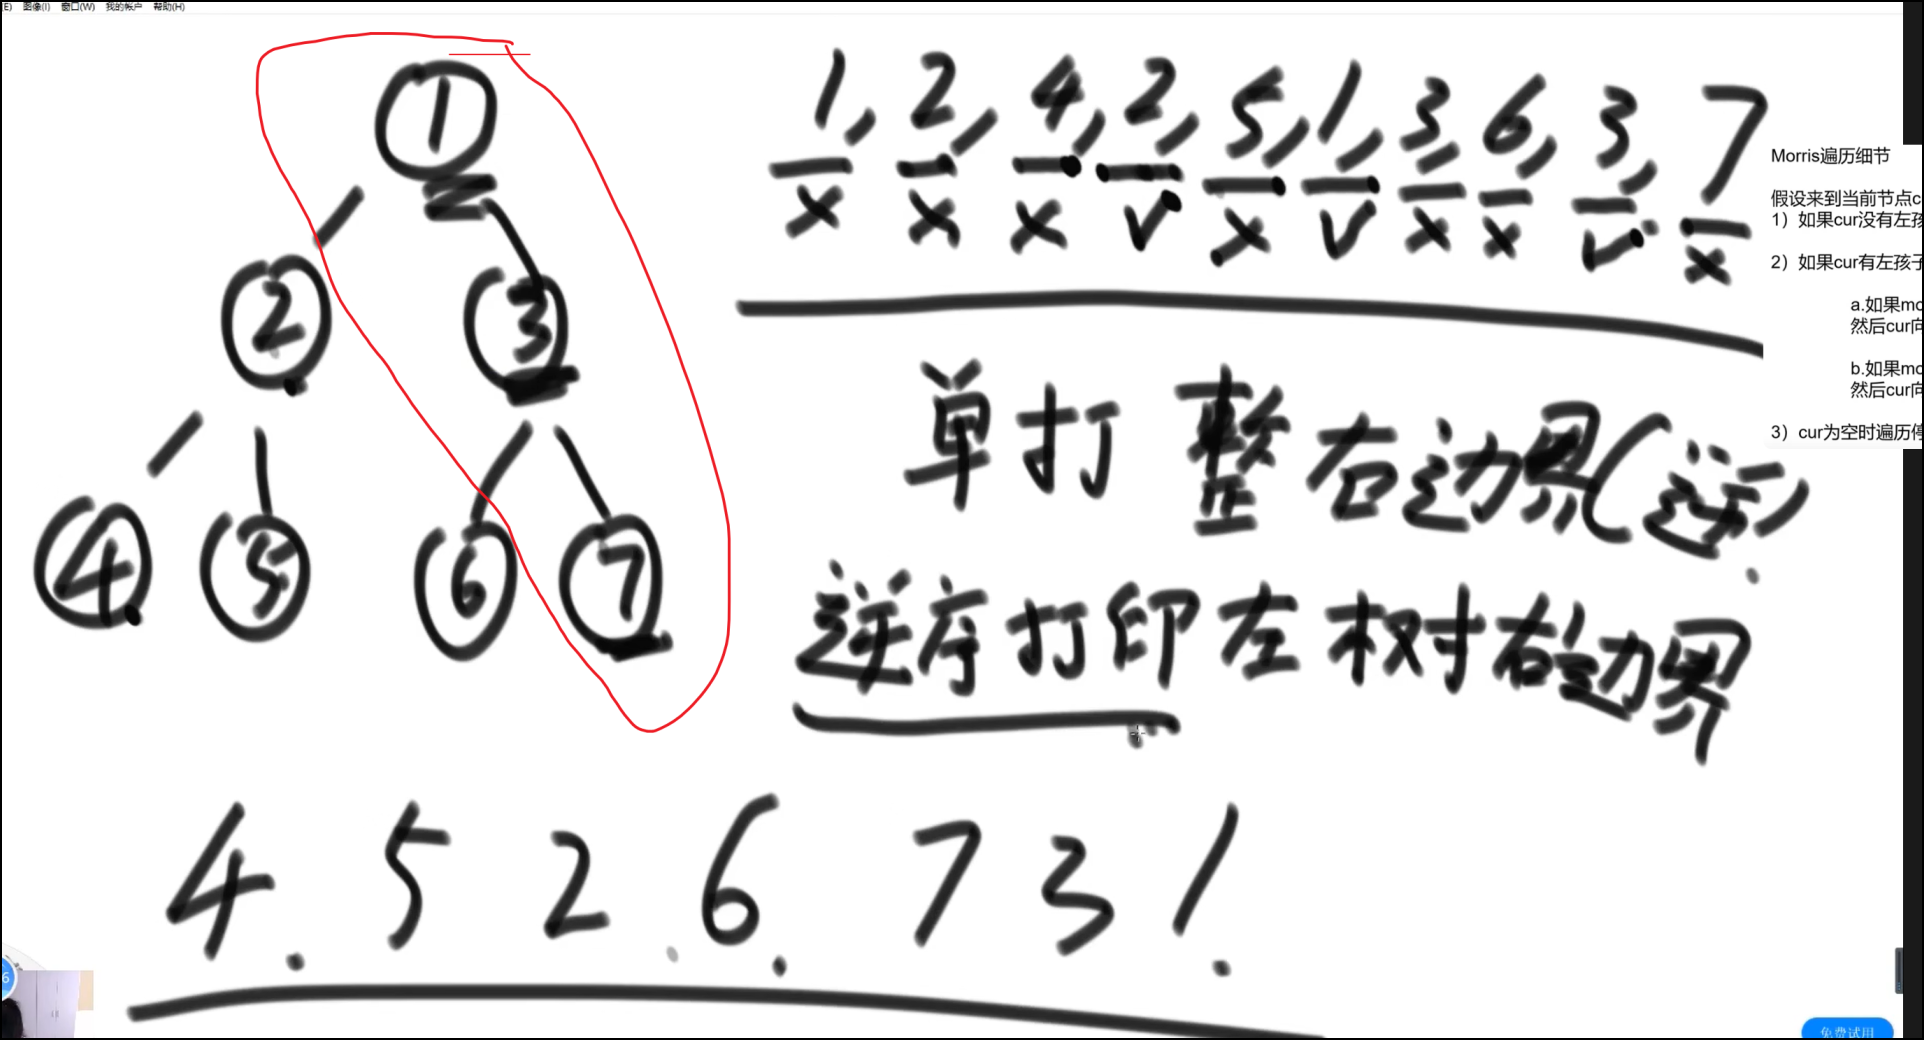 E) 图像(I) 窗口(W) 我的帐户 帮助(H)
1, 2, 4, 2, 5, 1, 3, 6, 3, 7
x x x √ x √ x x √ x
1
2 3
4 5 6 7
单打 整右边界(逆)
逆序打印左树右边界
4 5 2 6 7 3 1
Morris遍历细节
假设来到当前节点c
1）如果cur没有左孩
2）如果cur有左孩子
a.如果mo
然后cur向
b.如果mo
然后cur向
3）cur为空时遍历停
6
免费试用